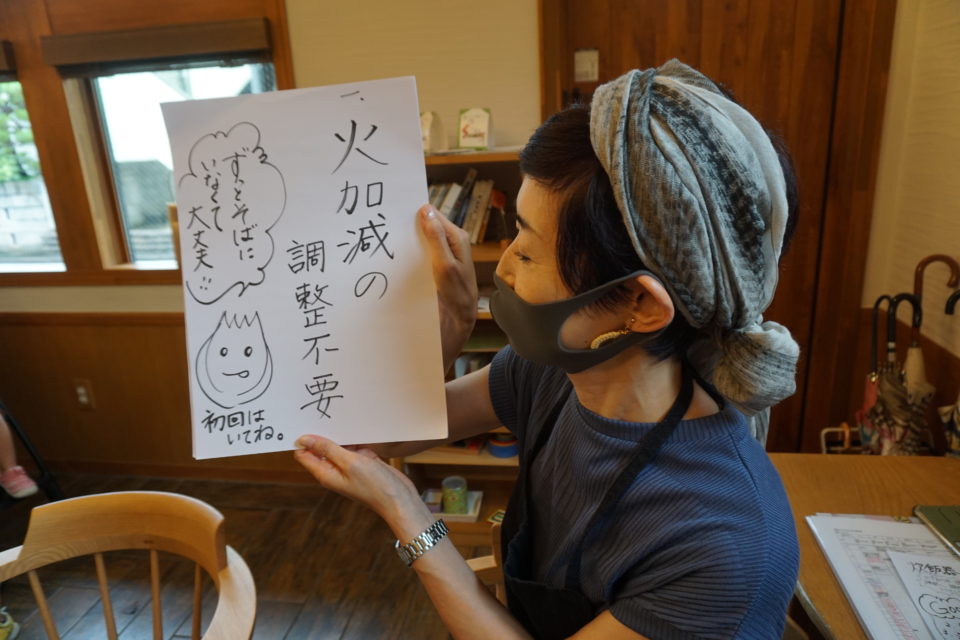 一、火加減の
調整不要
ずっとそばに
いなくて
大丈夫
初回は
いてね。